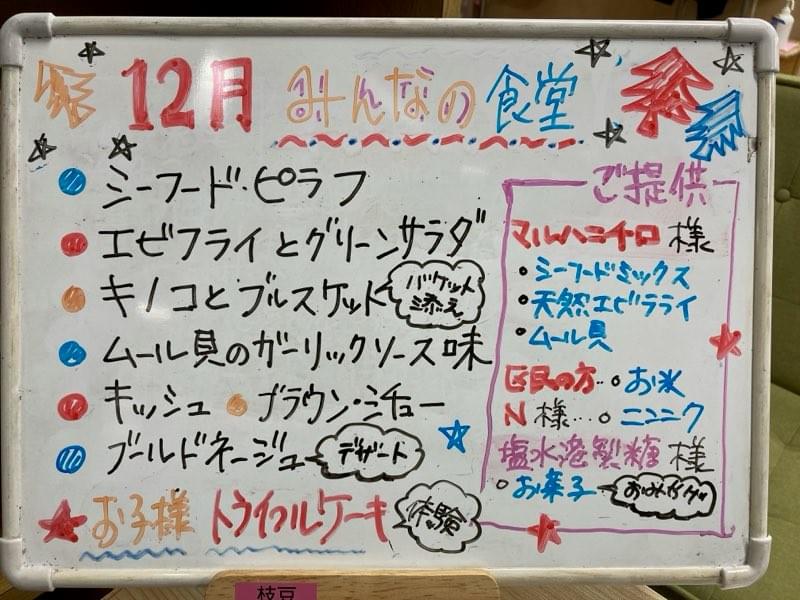 12月 みんなの食堂
シーフード・ピラフ
エビフライとグリーンサラダ
キノコとブルスケット
バケット
添え
ムール貝のガーリックソース味
キッシュ ブラウン・シチュー
ブールドネージュ
デザート
お子様 トライフルケーキ
体験
ご提供
マルハニチロ 様
・シーフードミックス
・天然エビフライ
・ムール貝
区民の方…○お米
N 様…○ニンニク
塩水港製糖 様
○お菓子
おみやげ
枝豆